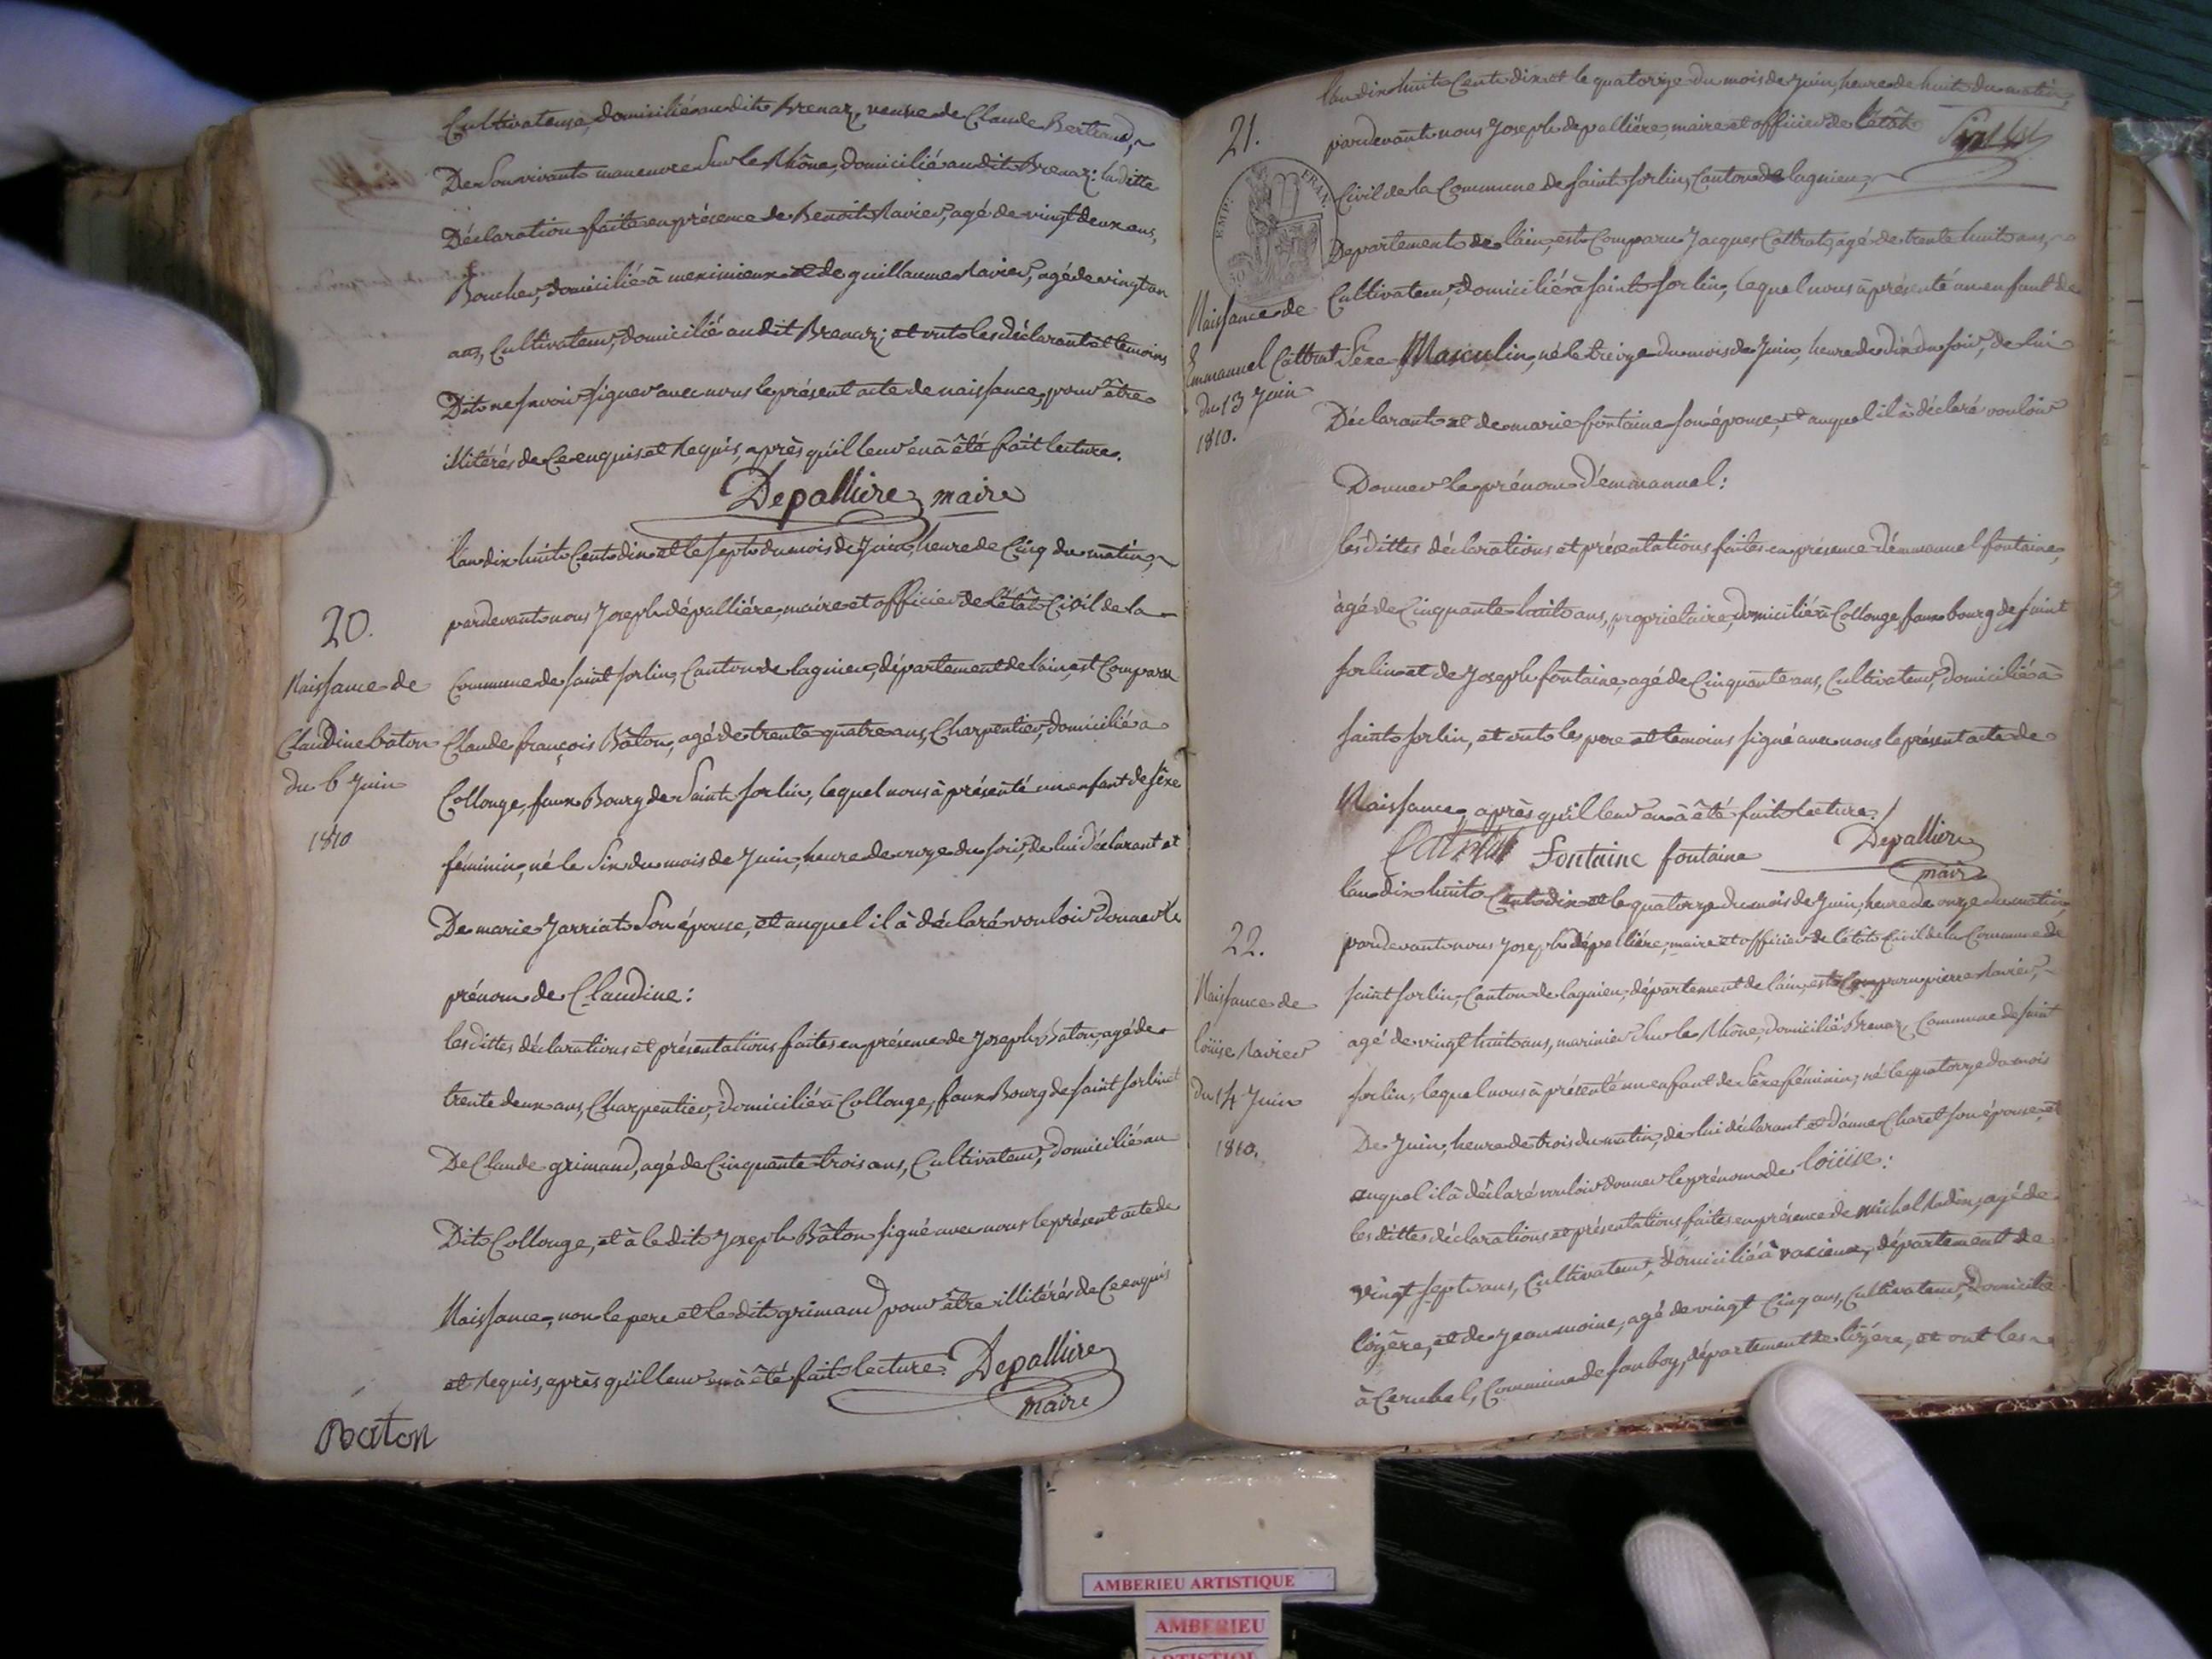 Cultivateuse, domicilié au dit Brenaz, veuve de Claude Bertrand,
De Son vivant manoeuvre Sur le Rhône, domicilié au dit Brenaz: la ditte
Déclaration faite en présence de Benoit Ravier, agé de vingt deux ans,
Boucher, domicilié à meximieux et de guillaume Ravier, agé de vingt un
ans, Cultivateur, domicilié au dit Brenaz; et ont les déclarant et temoins
Dit ne Savoir signer avec nous le présent acte de naissance, pour être
illitérés de Ce enquis et Requis, après qu'il leur en à été fait lecture.
Depalliere maire
20.
Naissance de
Claudine baton
du 6 Juin
1810
l'an dix huit Cent dix et le sept du mois de Juin, heure de Cinq du matin,
pardevant nous Joseph dépalliére, maire et officier de l'état Civil de la
Commune de saint sorlin, Canton de lagnieu, département de lain, est Comparu
Claude françois Bâton, agé de trente quatre ans, Charpentier, domicilié a
Collonge, faux Bourg de Saint sorlin, lequel nous à présenté un enfant de séxe
féminin, né le Six du mois de Juin, heure de onze du soir, de lui déclarant et
De marie Jarriat Son épouse, et auquel il à déclaré vouloir donner le
prénom de Claudine:
les dittes déclarations et présentations faites en présence de Joseph Bâton, agé de
trente deux ans, Charpentier, domicilié à Collonge, faux Bourg de saint sorlin et
De Claude grimand, agé de Cinquante trois ans, Cultivateur, domicilié au
Dit Collonge, et à le dit Joseph Bâton signé avec nous le présent acte de
Naissance, non le pere et le dit grimand pour être illitérés de Ce enquis
et Requis, après qu'il leur en à été fait lecture. Depalliere
maire
Baton
21.
EMP. FRAN.
Naissance de
Emmanuel Cottrat
du 13 Juin
1810.
l'an dix huit Cent dix et le quatorze du mois de Juin, heure de huit du matin,
pardevant nous Joseph depalliére, maire et officier de l'état
Civil de la Commune de saint sorlin, Canton de lagnieu,
Departement de lain, est Comparu Jacques Cottrat, agé de trente huit ans,
Cultivateur, domicilié à saint sorlin, lequel nous à présenté un enfant de
Séxe Masculin, né le treize du mois de Juin, heure de dix du soir, de lui
Déclarant et de marie fontaine son épouse, et auquel il à déclaré vouloir
Donner le prénom d'émmanuel:
les dittes déclarations et présentations faites en présence d'émmanuel fontaine,
àgé de Cinquante huit ans, proprietaire, domicilié à Collonge faux bourg de saint
sorlin et de Joseph fontaine, agé de Cinquante ans, Cultivateur, domicilié à
saint sorlin, et ont le pere et temoins signé avec nous le présent acte de
Naissance, après qu'il leur en à été fait lecture./
fontaine fontaine Depalliere
maire
22.
Naissance de
loüise Ravier
Du 14 Juin
1810.
l'an dix huit Cent dix et le quatorze du mois de Juin, heure de onze du matin,
pardevant nous Joseph dépalliére, maire et officier de l'état Civil de la Commune de
saint sorlin, Canton de lagnieu, département de lain, est Comparu pierre Ravier,
agé de vingt huit ans, marinier Sur le Rhône, domicilié Brenaz, Commune de saint
sorlin, lequel nous à présenté un enfant de Séxe féminin, né le quatorze du mois
De Juin, heure de trois du matin, de lui déclarant et d'anne Charet son épouse, et
auquel il à déclaré vouloir donner le prénom de loüise:
les dittes déclarations et présentations faites en présence de michel Radin, agé de
vingt sept ans, Cultivateur, domicilié à vacieux, département de
l'izère, et de Jean moine, agé de vingt Cinq ans, Cultivateur, domicilié
à Carubel, Commune de fouboy, département de lizére, et ont les
AMBERIEU ARTISTIQUE
AMBERIEU
ARTISTIQUE